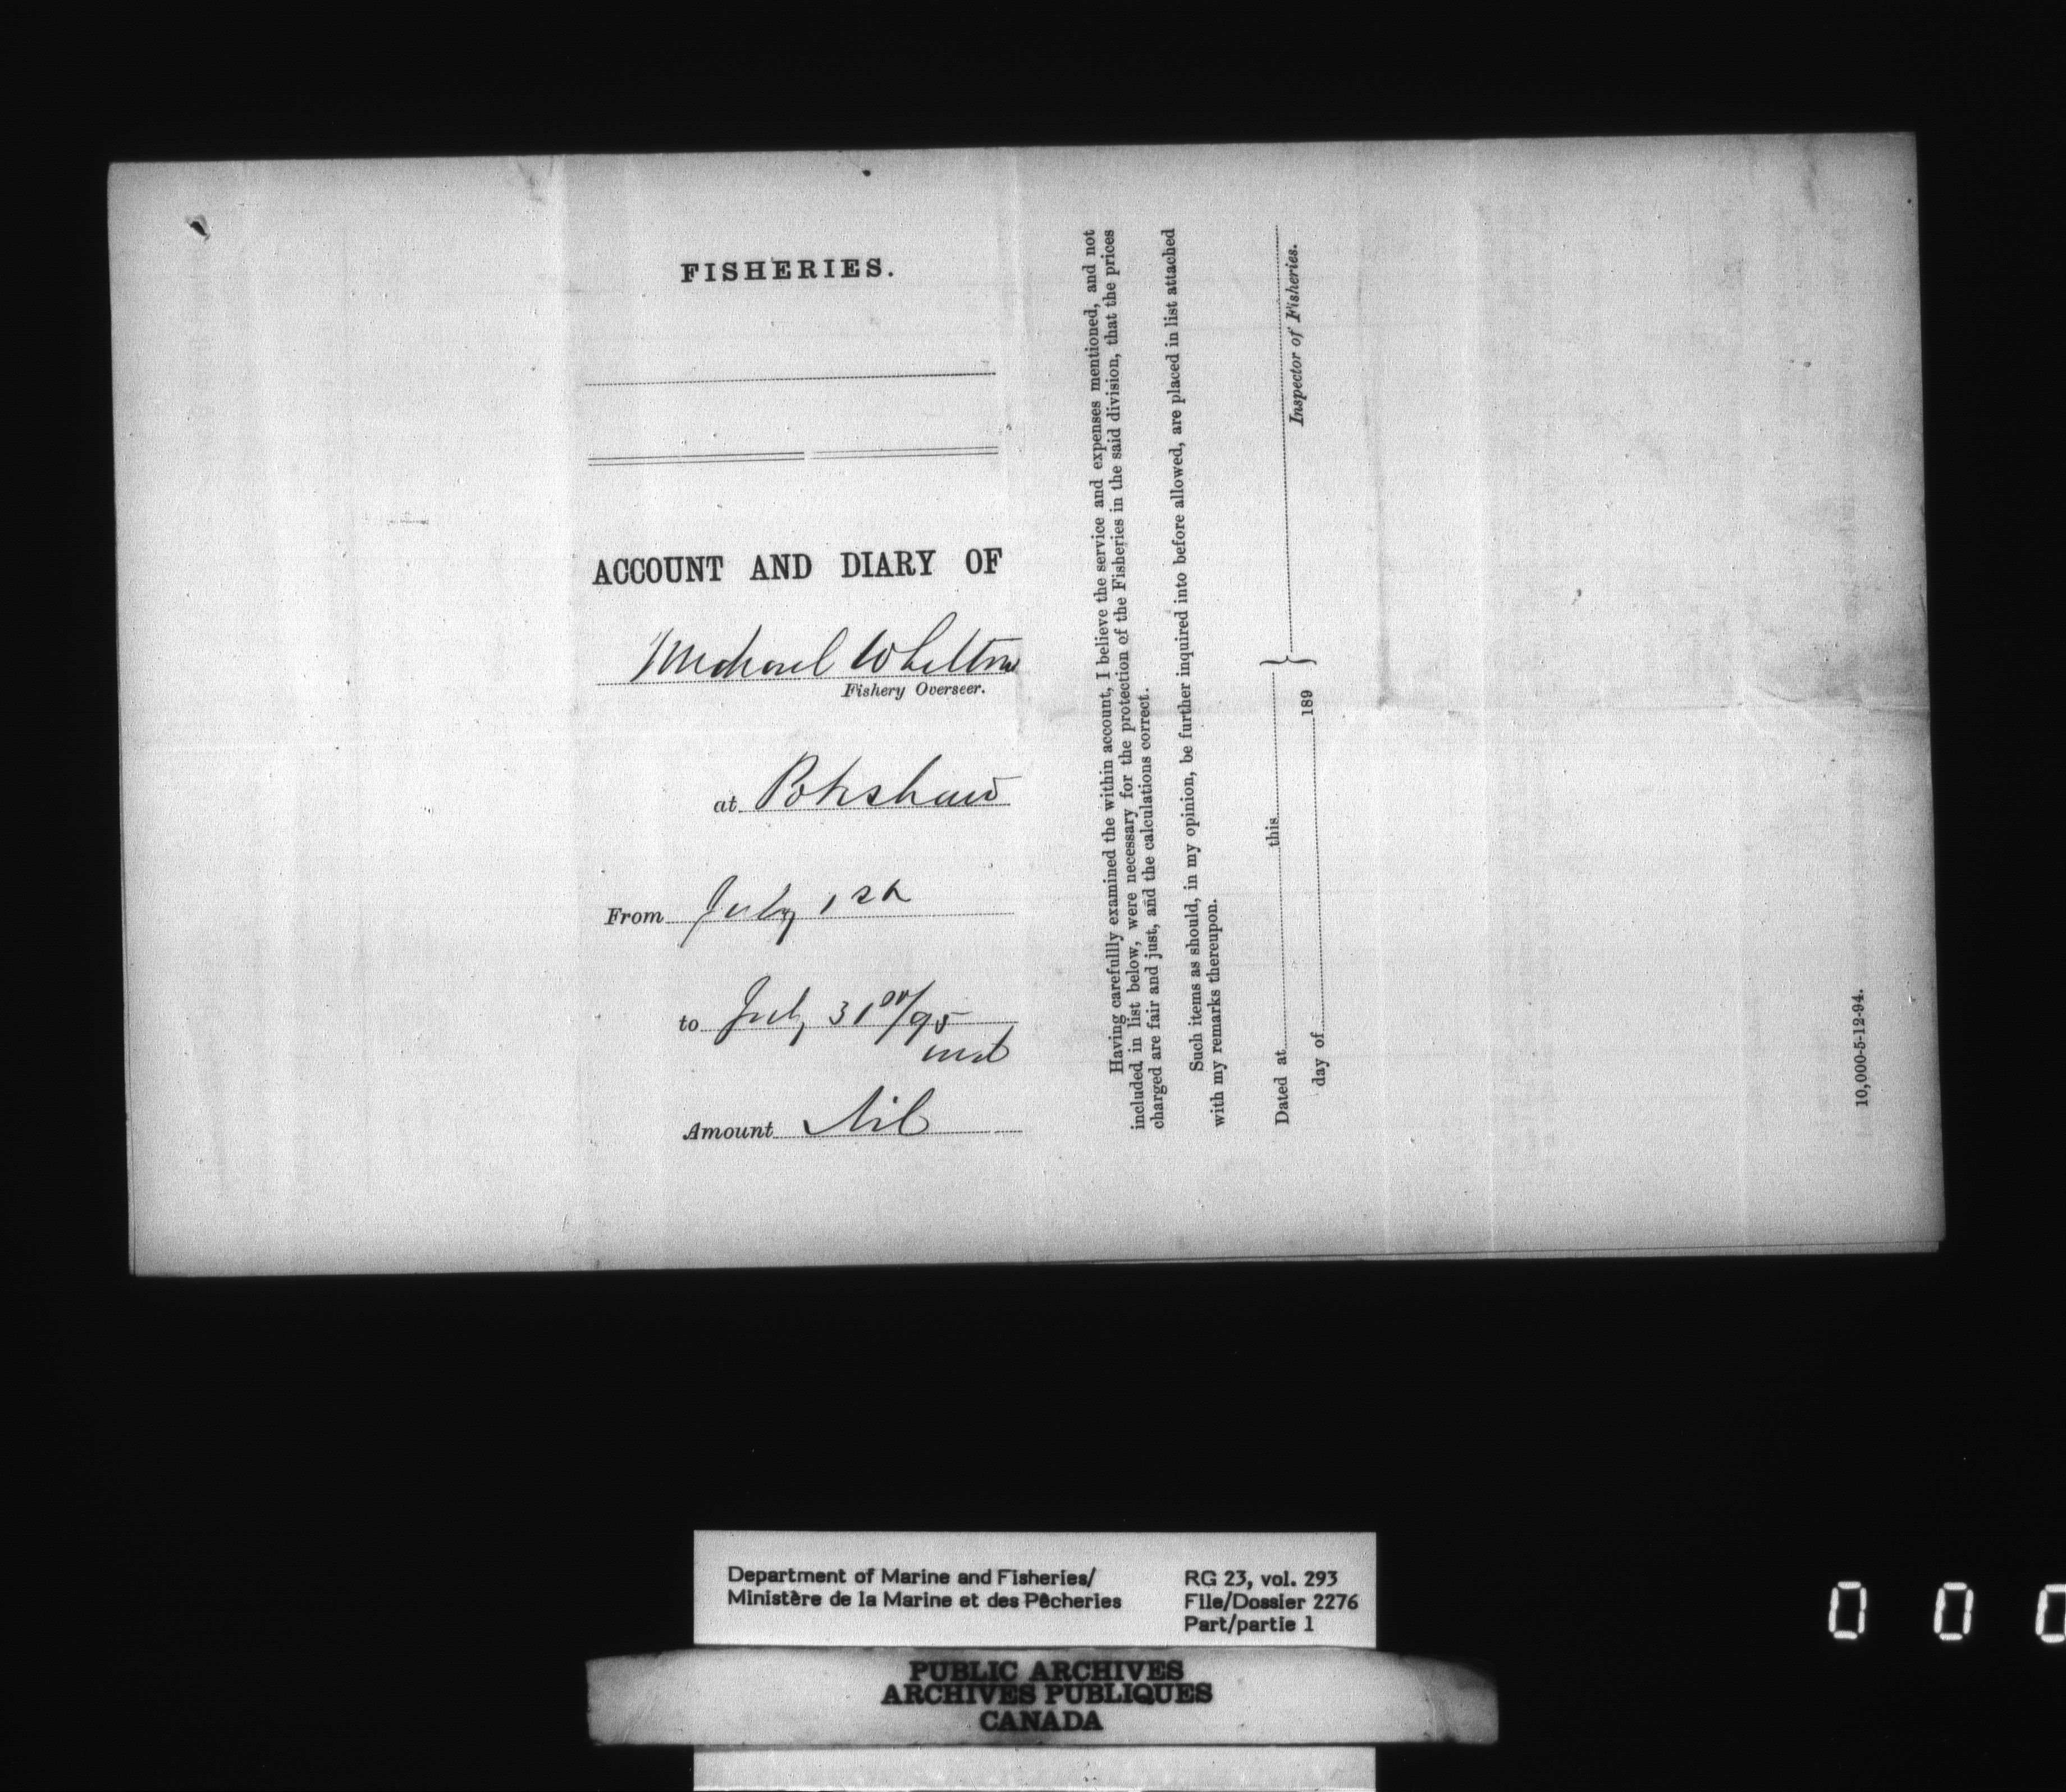 FISHERIES.
ACCOUNT AND DIARY OF
Michael Whelton
Fishery Overseer.
at Pokshaw
From July 1st
to July 31st/95
inst
Amount Nil
Having carefullly examined the within account, I believe the service and expenses mentioned, and not
included in list below, were necessary for the protection of the Fisheries in the said division, that the prices
charged are fair and just, and the calculations correct.
Such items as should, in my opinion, be further inquired into before allowed, are placed in list attached
with my remarks thereupon.
Dated at this
day of 189
Inspector of Fisheries.
10,000-5-12-94.
Department of Marine and Fisheries/
Ministère de la Marine et des Pêcheries
RG 23, vol. 293
File/Dossier 2276
Part/partie 1
PUBLIC ARCHIVES
ARCHIVES PUBLIQUES
CANADA
0 0 0